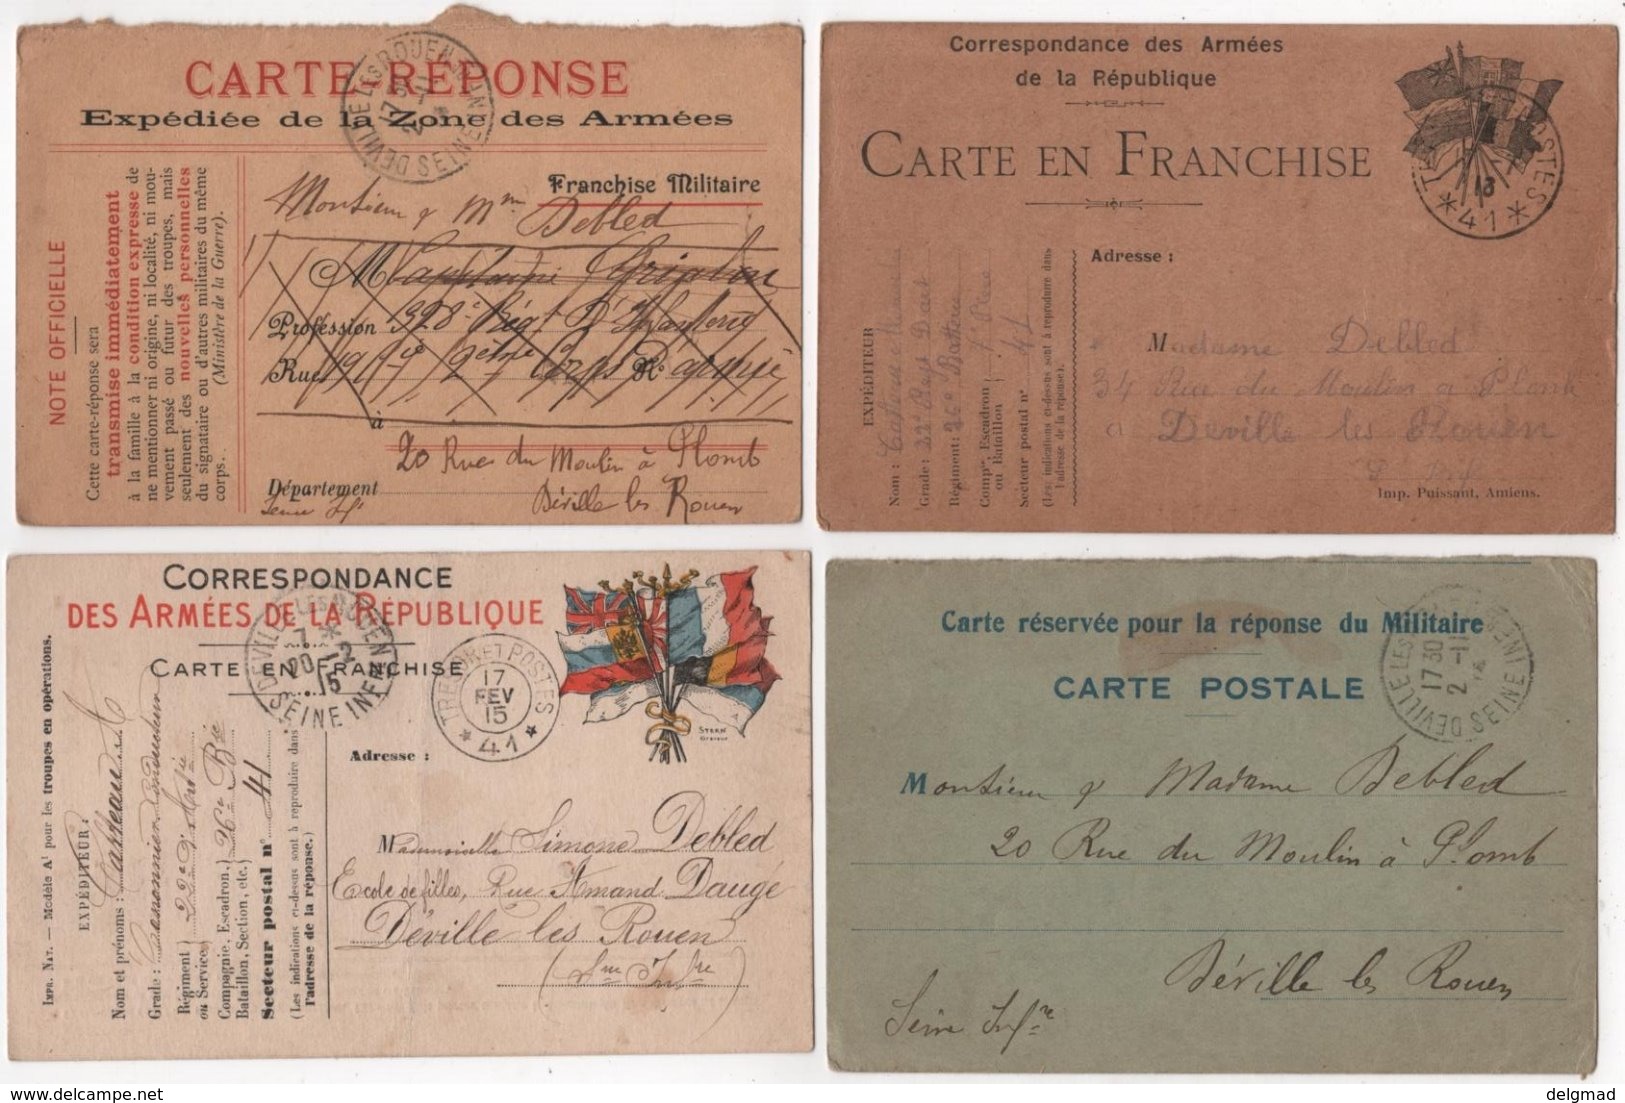 CARTE-RÉPONSE
Expédiée de la Zone des Armées
Franchise Militaire
NOTE OFFICIELLE
Cette carte-réponse sera
transmise immédiatement
à la famille à la condition expresse de
ne mentionner ni origine, ni localité, ni mou-
vement passé ou futur des troupes, mais
seulement des nouvelles personnelles
du signataire ou d'autres militaires du même
corps.
(Ministère de la Guerre).
Monsieur & Mme
Debled
M Capitaine
Profession 328e Régt D'Infanterie
Rue Corps d'armée
à
20 Rue du Moulin à Plomb
Département
Déville les Rouen
Seine Infre
DEVILLE LES ROUEN
SEINE
Correspondance des Armées
de la République
CARTE EN FRANCHISE
TRESOR ET POSTES
* 41 *
Adresse :
EXPÉDITEUR
Nom :
Grade :
Régiment :
Compie, Escadron
ou Bataillon
Secteur postal n° 41
(Les indications ci-dessus sont à reproduire dans
l'adresse de la réponse).
Madame Debled
34 Rue du Moulin a Plomb
a Deville les Rouen
Imp. Puissant, Amiens.
CORRESPONDANCE
DES ARMÉES DE LA RÉPUBLIQUE
CARTE EN FRANCHISE
DEVILLE LES ROUEN
7 *
20 - 2
15
SEINE INFRE
TRESOR ET POSTES
17
FEV
15
* 41 *
STERN
Graveur
IMPR. NAT. — Modèle A1 pour les troupes en opérations.
EXPÉDITEUR :
Nom et prénoms :
Grade : Canonnier Conducteur
Régiment
ou Service
22e d'Artie
Compagnie, Escadron,
Bataillon, Section, etc.
26e Bie
Secteur postal n° 41
(Les indications ci-dessus sont à reproduire dans
l'adresse de la réponse.)
Adresse :
Mademoiselle Simone Debled
Ecole de filles, Rue Armand Daugé
Déville les Rouen
(Sne Infre)
Carte réservée pour la réponse du Militaire
CARTE POSTALE
DEVILLE LES ROUEN
17 30
SEINE INFRE
Monsieur & Madame Debled
20 Rue du Moulin à Plomb
Déville les Rouen
Seine Infre
www.delcampe.net
delgmad